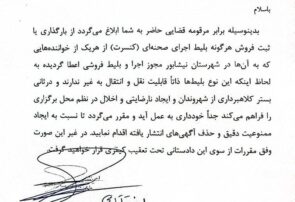 باسلام
بدینوسیله برابر مرقومه قضایی حاضر به شما ابلاغ می‌گردد از بارگذاری یا
ثبت فروش هرگونه بلیط اجرای صحنه‌ای (کنسرت) از هریک از خواننده‌هایی
که به آن‌ها در شهرستان نیشابور مجوز اجرا و بلیط فروشی اعطا گردیده به
لحاظ اینکه این نوع بلیط‌ها ذاتاً قابلیت نقل و انتقال به غیر ندارند و درثانی
بستر کلاهبرداری از شهروندان و ایجاد نارضایتی و اخلال در نظم محل برگزاری
را فراهم می‌کند جداً خودداری به عمل آید و مقرر می‌گردد نسبت به ایجاد
ممنوعیت دقیق و حذف آگهی‌های انتشار یافته اقدام نمایید. در غیر این صورت
وفق مقررات از سوی این دادستانی تحت تعقیب کیفری قرار خواهید گرفت.